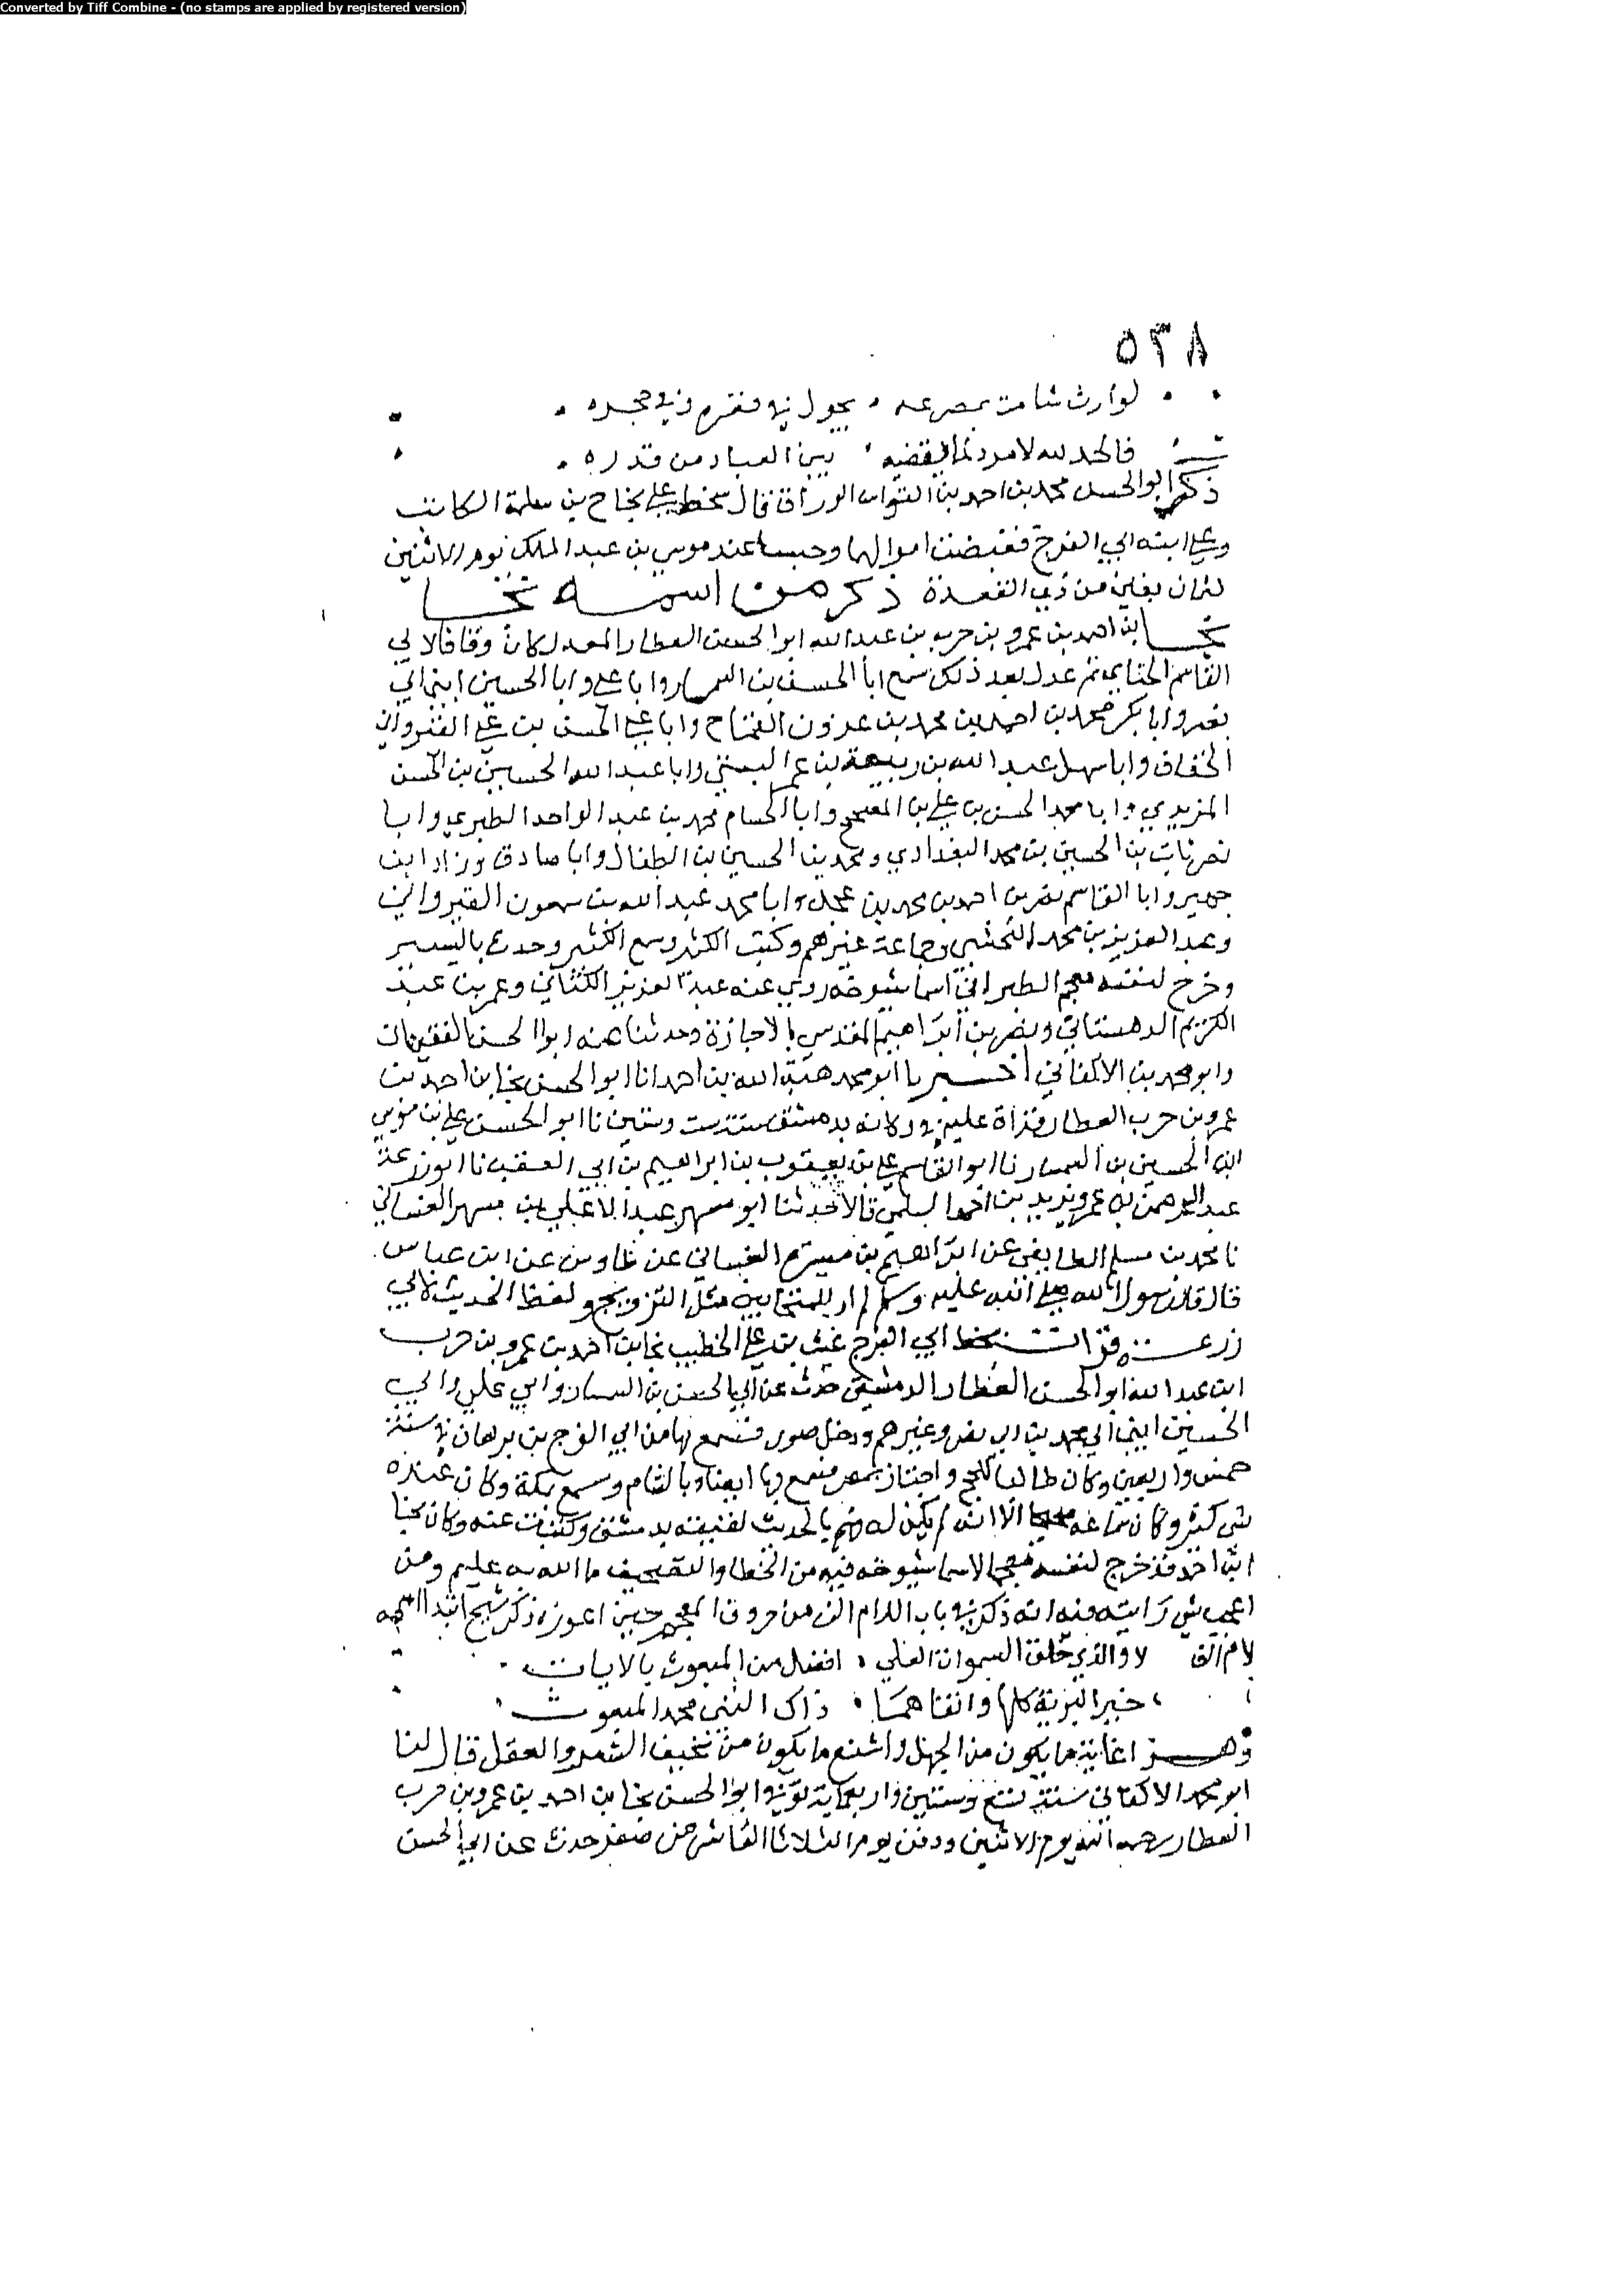 Converted by Tiff Combine - (no stamps are applied by registered version)
٥٣٨
لوارث شامت بمصرعه يجول فيه وفي حجره
فالحمد لله لا مرد لما يقضيه بين العباد من قدره
ذكر ابو الحسن محمد بن احمد بن القواس الوراق قال سخط على نجاح بن سلمة الكاتب
وعلى ابنه ابي الفرج فقبضت اموالهما وحبسا عند موسى بن عبد الملك يوم الاثنين
لثمان بقين من ذي القعدة ذكر من اسمه نجا
نجا بن احمد بن عمرو بن حرب بن عبد الله ابو الحسن العطار المعدل كان وقافا لابي
القاسم الحنائي ثم عدل بعد ذلك سمع ابا الحسن بن السمسار وابا علي وابا الحسين ابني ابي
نصر وابا بكر محمد بن احمد بن محمد بن عبد الله وابا علي الحسن بن علي
الخفاف وابا سهل عبد الله بن ربيعة بن عمر البستي وابا عبد الله الحسين بن الحسن
وابا محمد الحسن بن علي بن وابا محمد بن عبد الواحد الطبري وابا
نصر بن الحسين بن محمد البغدادي ومحمد بن الحسين بن الطفال وابا صادق ابن
وابا القاسم نصر بن احمد بن محمد بن عجل وابا محمد عبد الله بن سمعون القيرواني
وعبد العزيز بن محمد النخشبي وجماعة غيرهم وكتب الكثير وسمع الكثير وحدث باليسير
وخرج لنفسه معجم الطبراني اسما شيوخه روى عنه عبد العزيز الكتاني وعمر بن عبد
الكريم الدهستاني ونصر بن ابراهيم المقدسي بالاجازة وحدثنا عنه ابوا الحسن الفقيهان
وابو محمد بن الاكفاني اخبرنا ابو محمد هبة الله بن احمد انا ابو الحسن نجا بن احمد بن
عمرو بن حرب العطار قراة عليه وكان بدمشق سنة ست وستين نا ابو الحسن علي بن موسى
ابن الحسين بن السمسار نا ابو القاسم علي بن يعقوب بن ابراهيم بن ابي العقب نا ابو زرعة
عبد الرحمن بن عمرو ويزيد بن احمد السلمي قالا حدثنا ابو مسهر عبد الاعلى بن مسهر الغساني
نا محمد بن مسلم الطايفي عن ابراهيم بن ميسرة عن طاوس عن ابن عباس
قال قال رسول الله صلى الله عليه وسلم لم ار للمتحابين مثل التزويج ولفظ الحديث لابي
زرعة قرات بخط ابي الفرج غيث بن علي الخطيب نجا بن احمد بن عمرو بن حرب
ابن عبد الله ابو الحسن العطار الدمشقي حدث عن ابي الحسن بن السمسار وابي علي وابي
الحسين ابني ابي محمد بن ابي نصر وغيرهم ودخل صور فسمع بها من ابي الفرج بن برهان في سنة
خمس واربعين وكان طالبا للحج واجتاز بمصر فسمع بها ايضا وبالشام وسمع بمكة وكان عنده
شي كثير وكان سماعه صحيحا الا انه لم يكن له فهم بالحديث لقيته بدمشق وكتبت عنه وكان نجا
ابن احمد قد خرج لنفسه معجما لاسما شيوخه فيه من الخطا والتصحيف ما الله به عليم ومن
اعجب شي رايته فيه انه ذكر في باب اللام الف من حروف المعجم حين اعوزه ذكر شيخ ابتدا اسمه
لام الف لا والذي خلق السموات العلى افضل من المبعوث بالايات
خير البرية كلها واتقاهما ذاك النبي محمد المبعوث
وهذا غاية ما يكون من الجهل واشنع ما يكون من سخيف الشعر والعقل قال لنا
ابو محمد الاكفاني سنة تسع وستين واربعماية توفي ابو الحسن نجا بن احمد بن عمرو بن حرب
العطار رحمه الله يوم الاثنين ودفن يوم الثلاثا العاشر من صفر حدث عن ابي الحسن